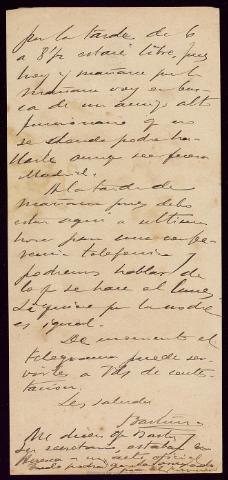 por la tarde, de 6
a 8½ estaré libre, pues
hoy y mañana por la
mañana voy en bus-
ca de un amigo alto
funcionario q no
se donde podre ha-
llarle aunq sea fuera
Madrid.
A la tarde de
mañana pues debo
estar aqui a ultima
hora para una confe-
rencia telefonica
podremos hablar de
lo q se hace el lunes.
Si quiere por la noche
es igual.
De momento el
telegrama puede ser-
virles a Vds de contes-
tacion.
Les saluda
Me dicen q
su secretario estaban en
Huesca